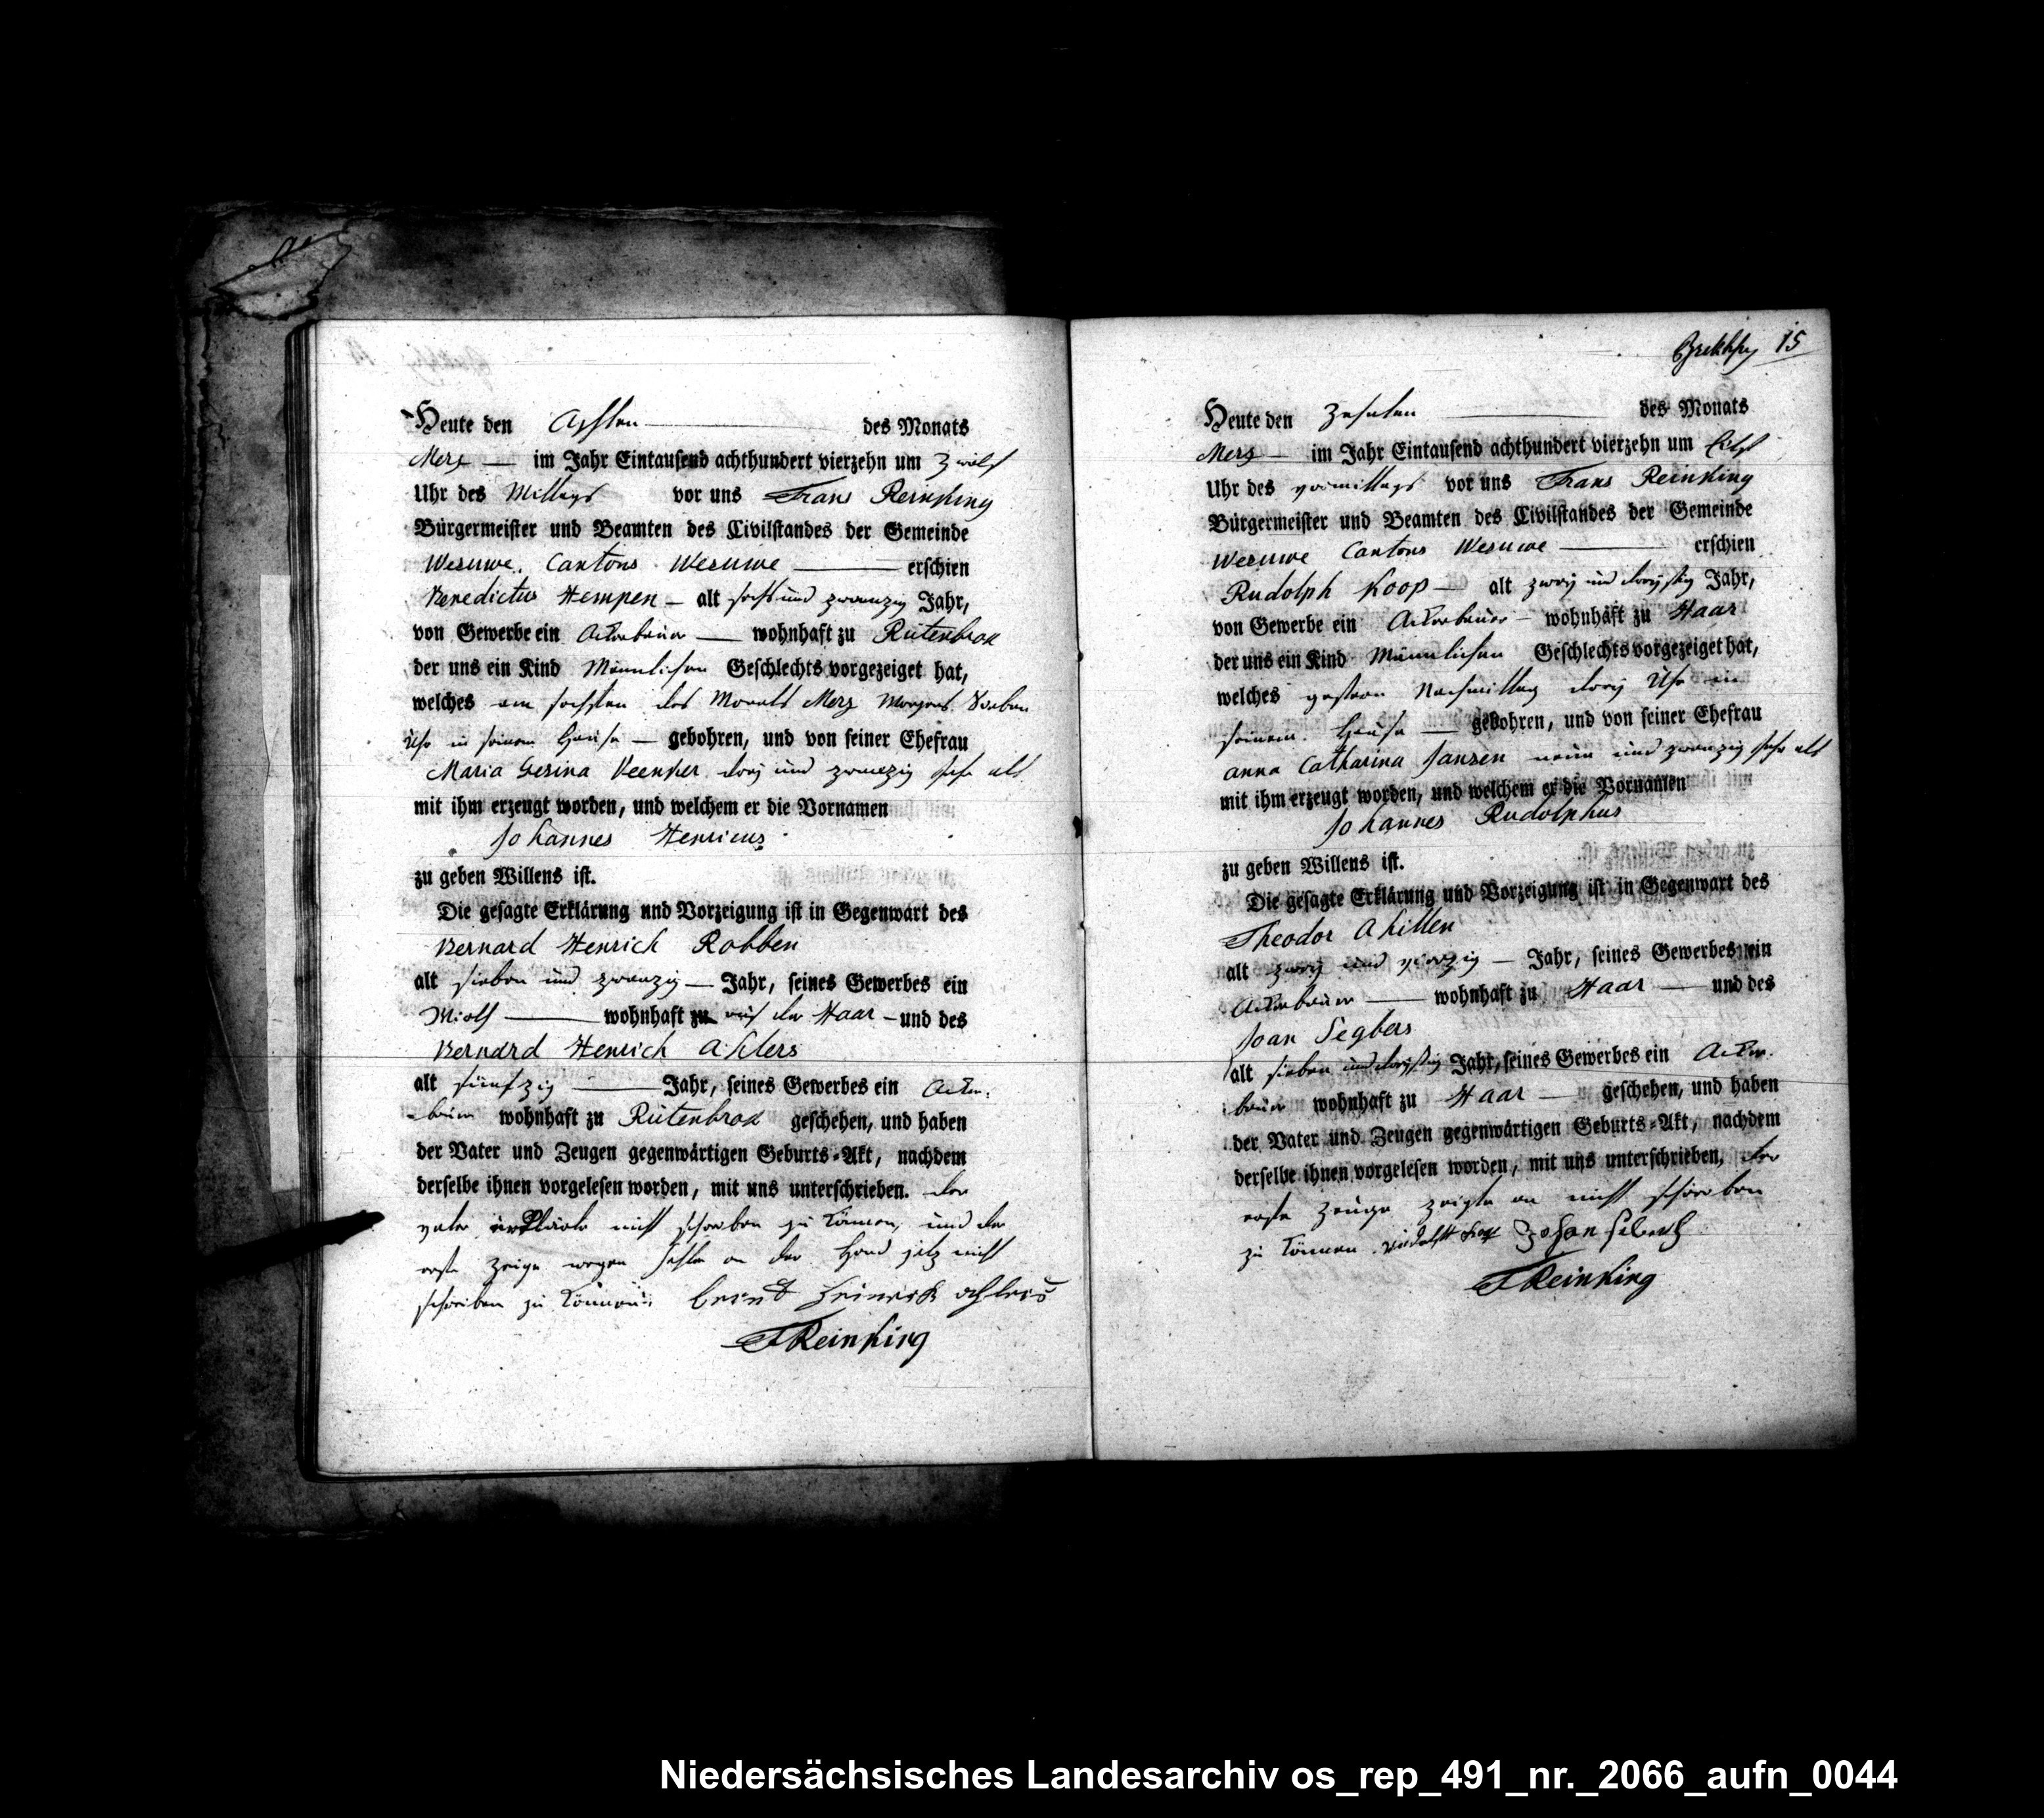 Heute den Achten des Monats
Merz im Jahr Eintausend achthundert vierzehn um zwölf
Uhr des Mittags vor uns Frans Reinking
Bürgermeister und Beamten des Civilstandes der Gemeinde
Wesuwe. Cantons Wesuwe erschien
Benedictus Hempen alt sechs und zwanzig Jahr,
von Gewerbe ein Ackerbauer wohnhaft zu Rütenbrok
der uns ein Kind Männlichen Geschlechts vorgezeiget hat,
welches am sechsten des Monats Merz Morgens Sieben
Uhr in seinem Hause gebohren, und von seiner Ehefrau
Maria Gesina Veenker drey und zwanzig Jahr alt
mit ihm erzeugt worden, und welchem er die Vornamen
Johannes Henricus
zu geben Willens ist.
Die gesagte Erklärung und Vorzeigung ist in Gegenwart des
Bernard Henrich Robben
alt sieben und zwanzig Jahr, seines Gewerbes ein
wohnhaft zu auf der Haar und des
Bernard Henrich Ahlers
alt fünfzig Jahr, seines Gewerbes ein Acker-
bauer wohnhaft zu Rütenbrok geschehen, und haben
der Vater und Zeugen gegenwärtigen Geburts-Akt, nachdem
derselbe ihnen vorgelesen worden, mit uns unterschrieben. der
vater erklärte nicht schreiben zu können, und der
erste Zeuge wegen Fehler an der Hand jetz nicht
schreiben zu können. Bernd Heinerich Ahlers
FReinking
15
Heute den Zehnten des Monats
Merz im Jahr Eintausend achthundert vierzehn um Eilf
Uhr des vormittags vor uns Frans Reinking
Bürgermeister und Beamten des Civilstandes der Gemeinde
Wesuwe Cantons Wesuwe erschien
Rudolph Koop alt zwey und dreyßig Jahr,
von Gewerbe ein Ackerbauer wohnhaft zu Haar
der uns ein Kind Männlichen Geschlechts vorgezeiget hat,
welches gestern Nachmittag drey Uhr in
seinem Hause gebohren, und von seiner Ehefrau
Anna Catharina Jansen neun und zwanzig Jahr alt
mit ihm erzeugt worden, und welchem er die Vornamen
Johannes Rudolphus
zu geben Willens ist.
Die gesagte Erklärung und Vorzeigung ist in Gegenwart des
Theodor Ahillen
alt zwey und vierzig Jahr, seines Gewerbes ein
Ackerbauer wohnhaft zu Haar und des
Joan Segbers
alt sieben und dreyßig Jahr, seines Gewerbes ein Acker-
bauer wohnhaft zu Haar geschehen, und haben
der Vater und Zeugen gegenwärtigen Geburts-Akt, nachdem
derselbe ihnen vorgelesen worden, mit uns unterschrieben, der
erste Zeuge zeigte an nicht schreiben
zu können.
FReinking
Niedersächsisches Landesarchiv os_rep_491_nr._2066_aufn_0044